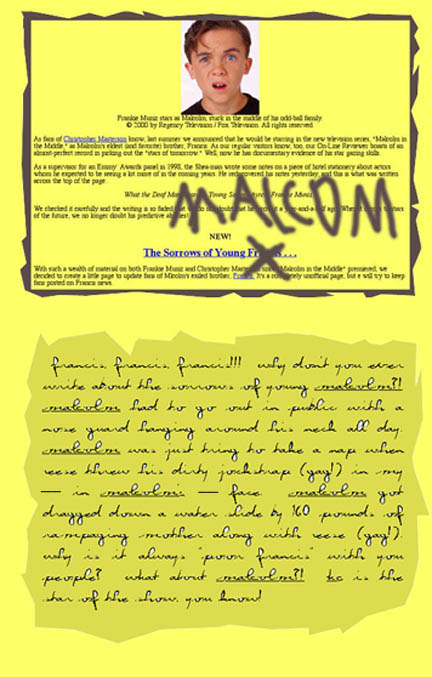 Frankie Muniz stars as Malcolm, stuck in the middle of his odd-ball family.
© 2000 by Regency Television / Fox Television. All rights reserved.
As fans of Christopher Masterson know, last summer we announced that he would be starring in the new television series, "Malcolm in
the Middle," as Malcolm's eldest (and favorite) brother, Francis. As our regular visitors know, too, our On-Line Reviewer boasts of an
almost-perfect record in picking out the "stars of tomorrow." Well, now he has documentary evidence of his star gazing skills.
As a supervisor for an Emmy Awards panel in 1998, the man wrote some notes on a piece of hotel stationery about actors
whom he expected to be seeing a lot more of in the coming years. He rediscovered his notes yesterday, and this is what was written
across the top of the page.
What the Deaf Man Young
We checked it carefully and the writing is so faded that a year-and-a-half ago. When it comes to stars
of the future, we no longer doubt his predictive abilities!
MALCOM
X
NEW!
The Sorrows of Young Francis . . .
With such a wealth of material on both Frankie Muniz and Christopher Masterson "Malcolm in the Middle" premiered, we
decided to create a little page to update fans of Malcolm's exiled brother, Francis. It's a completely unofficial page, but we will try to keep
fans posted on Francis news.
francis, francis, francis!!! why don't you ever
write about the sorrows of young malcolm?!
malcolm had to go out in public with a
nose guard hanging around his neck all day.
malcolm was just trying to take a nap when
reese threw his dirty jockstrap (yay!) in my
— in malcolm's — face. malcolm got
dragged down a water slide by 160 pounds of
rampaging mother along with reese (yay!).
why is it always "poor francis" with you
people? what about malcolm?! he is the
star of the show, you know!